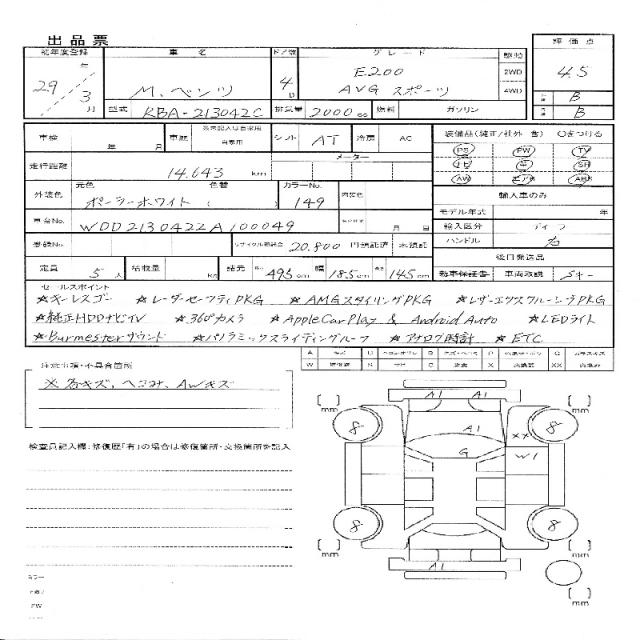 出品票
初年度登録 車名 ドア数 グレード 駆動 評価点
29年 3月 M.ベンツ 4D E200 AVG スポーツ 2WD 4WD 4.5
型式 RBA-213042C 排気量 2000cc 燃料 ガソリン B B
車検 年 月 車歴 シフト AT 冷房 AC 装備品(純正/社外 含) ○をつける
走行距離 14,643km メーター PS PW TV
外装色 元色 ポーラーホワイト 色替 ( ) カラーNo. 149 内装色 AW エアB ABS
輸入車のみ
車台No. WDD2130422A100049 月 日 モデル年式 年
輸入区分 ディーラ
登録No. リサイクル預託金 20,800円 預託済 未預託 ハンドル 右
後日発送品
定員 5人 積載量 kg 諸元 長さ 493cm 幅 185cm 高さ 145cm 新車保証書 車両取説 スキー
セールスポイント
☆キーレスゴー ☆レーダーセーフティPKG ☆AMGスタイリングPKG ☆レザーエクスクルーシブPKG
☆純正HDDナビTV ☆360°カメラ ☆AppleCarPlay & Android Auto ☆LEDライト
☆Burmesterサウンド ☆パノラミックスライディングルーフ ☆アナログ時計 ☆ETC
A キズ U B P G
W S C X XX
注意事項・不具合箇所
※各キズ、ヘコみ、AWキズ
検査員記入欄:修復歴「有」の場合は修復箇所・交換箇所を記入
[ ]mm A1 A1 [ ]mm
8 A1 XX 8
G W1
8 8
[ ]mm A1 [ ]mm
[ ]mm
カラー
PW